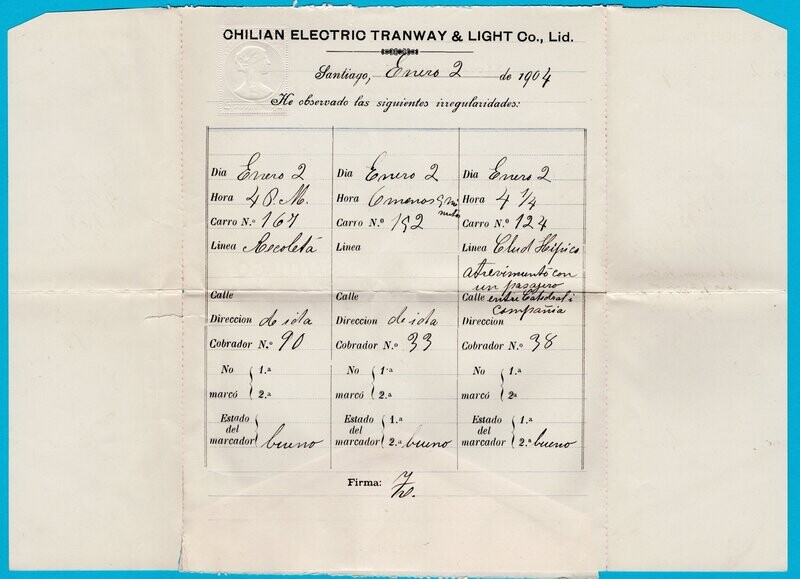 CHILIAN ELECTRIC TRANWAY & LIGHT Co., Lid.
Santiago, Enero 2 de 1904
He observado las siguientes irregularidades:
Dia Enero 2
Hora 4 P.M.
Carro N.º 167
Linea Recoletá
Calle
Direccion de ida
Cobrador N.º 90
No marcó { 1.ª
2.ª
Estado del marcador } bueno
Dia Enero 2
Hora 6 menos 5 mi
nutos
Carro N.º 152
Linea
Calle
Direccion de ida
Cobrador N.º 33
No marcó { 1.ª
2.ª
Estado del marcador { 1.ª
2.ª bueno
Dia Enero 2
Hora 4 1/4
Carro N.º 124
Linea Clud Hípico
atrevimuntó con
un pasajero
Calle entre Catedral i
Compañia
Direccion
Cobrador N.º 38
No marcó { 1.ª
2ª
Estado del marcador { 1.ª
2.ª bueno
Firma: